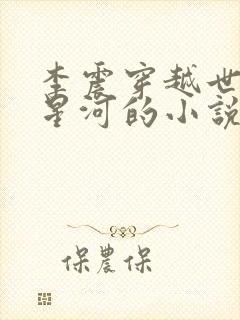 李震穿越世
星河的小說
保農保